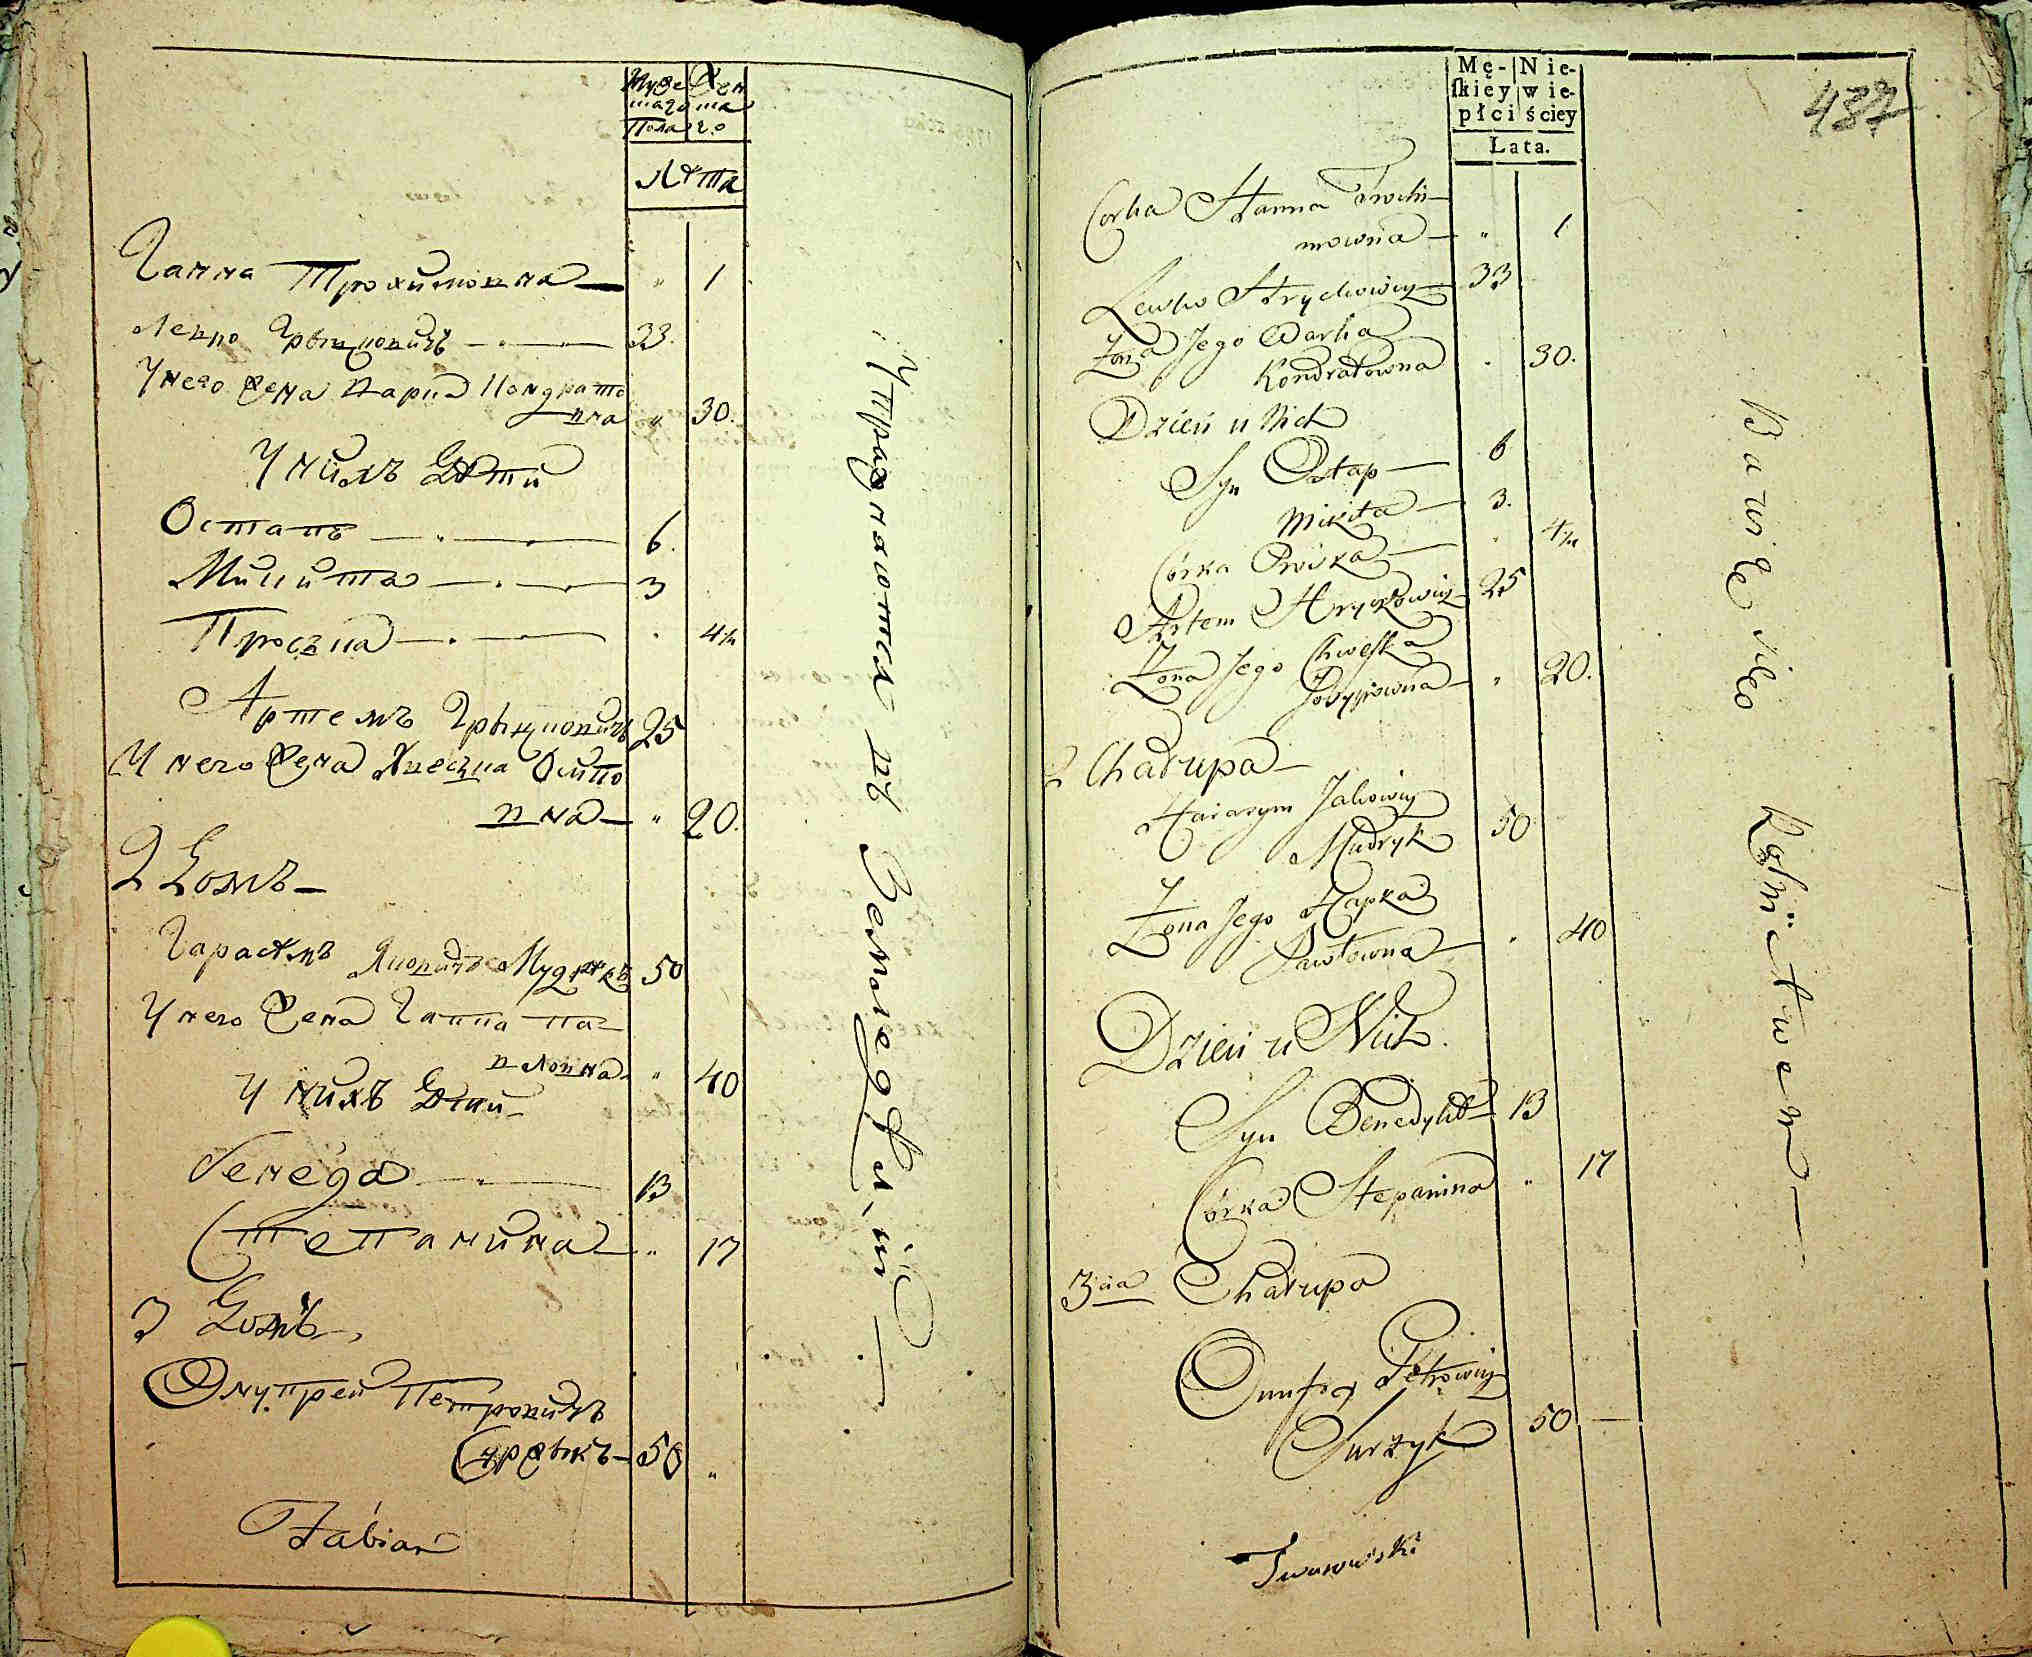 Муже Жен
таго та
Пола го
Лѣта
Ганна Трохимовна — " 1
Левко Грыцковичъ — 33.
У него Жена Дария Кондрато
вна " 30.
У нихъ Дѣти
Остапъ — 6.
Микита — 3
Проська — 4
Артемъ Грыцковичъ 25
У него Жена Хвеська Осипо
вна — " 20.
2 Домъ —
Гарасимъ Яковичъ Мудрыкъ 50
У него Жена Гапка Па
вловна " 40
У нихъ Дѣти
Бенедь — 13
Степанина — " 17
3 Домъ
Онупрей Петровичъ
Суржыкъ — 50 "
Fabian
Упражнаются въ Земледѣліи —
437
Mę- Nie-
ſkiey wie-
płci ściey
Lata.
Corka Hanna Trochi-
mowna — " 1
Lewko Hryckowicz 33
Żona Jego Darka
Kondratowna 30.
Dzieci u Nich
Syn Ostap — 6
Mikita — 3.
Córka Proska — 4
Artem Hryckowicz 25
Żona Jego Chweſka
Josypowna — " 20.
2 Chałupa —
Harasym Jakowicz
Mudryk 50
Żona Jego Hapka
Pawłowna — 40
Dzieci u Nich.
Syn Benedykt 13
Córka Stepanina " 17
3cia Chałupa
Onufry Petrowicz
Surzyk 50 —
Iwanowski
Bawię się Rolnictwem —